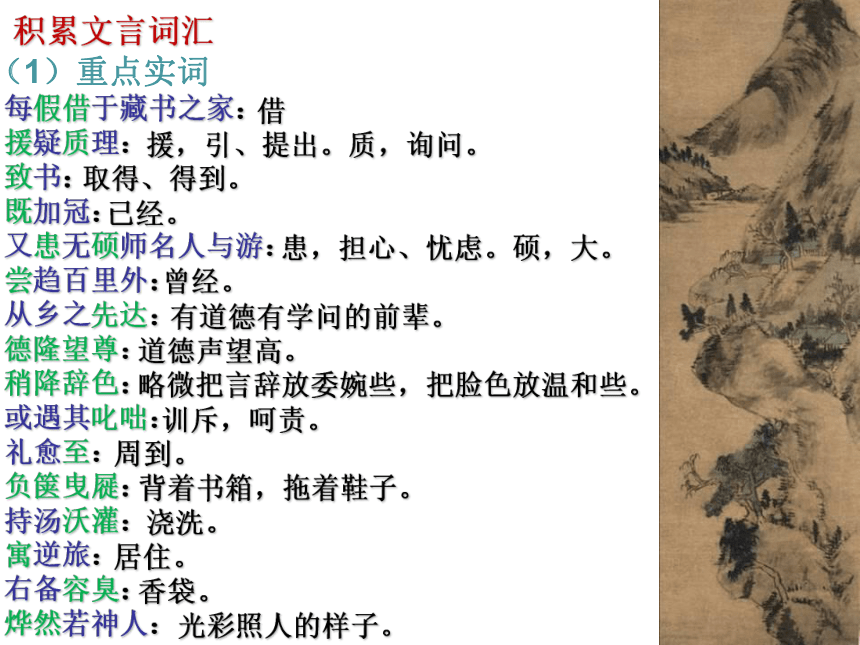 积累文言词汇
（1）重点实词
每假借于藏书之家：借
援疑质理：援，引、提出。质，询问。
致书：取得、得到。
既加冠：已经。
又患无硕师名人与游：患，担心、忧虑。硕，大。
尝趋百里外：曾经。
从乡之先达：有道德有学问的前辈。
德隆望尊：道德声望高。
稍降辞色：略微把言辞放委婉些，把脸色放温和些。
或遇其叱咄：训斥，呵责。
礼愈至：周到。
负箧曳屣：背着书箱，拖着鞋子。
持汤沃灌：浇洗。
寓逆旅：居住。
右备容臭：香袋。
烨然若神人：光彩照人的样子。